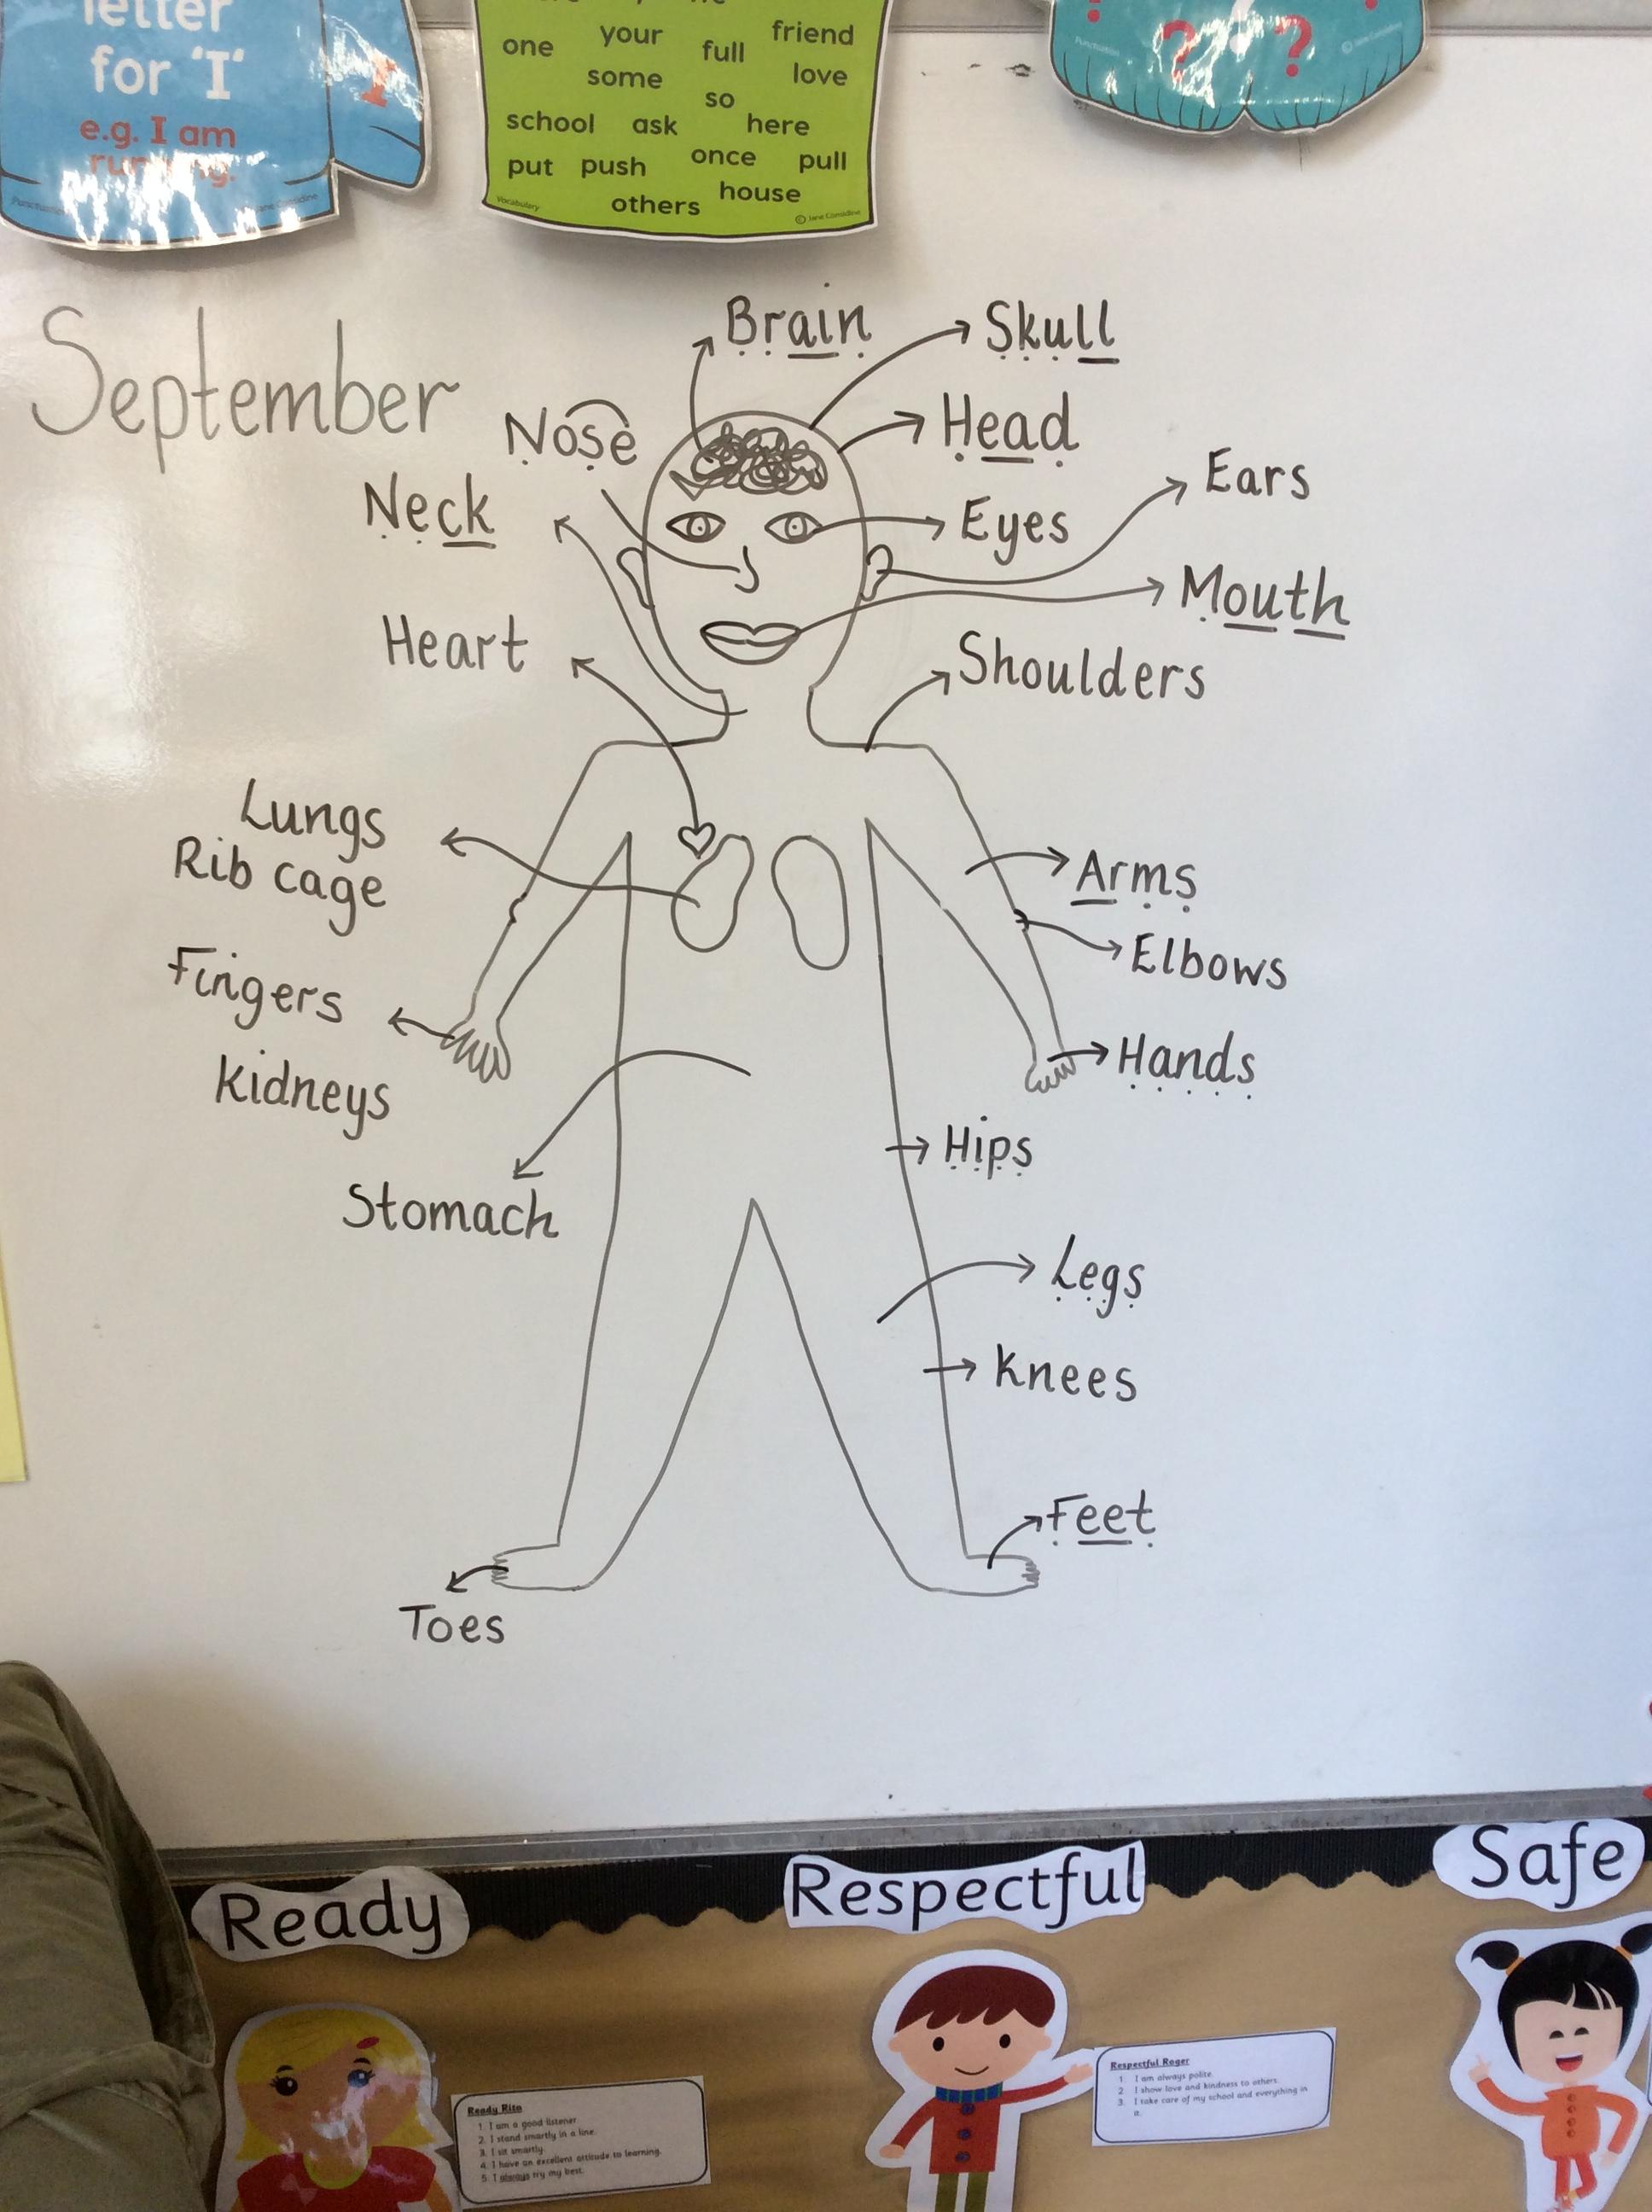 letter
for 'I'
e.g. I am
running.
Punctuation
I
one your full friend
some love
so
school ask here
put push once pull
others house
Vocabulary
© Jane Considine
Punctuation
? ?
© Jane Considine
September
Brain
Skull
Nose
Head
Neck
Ears
Eyes
Mouth
Heart
Shoulders
Lungs
Rib cage
Arms
Elbows
Fingers
Hands
Kidneys
Hips
Stomach
Legs
Knees
Feet
Toes
Ready
Respectful
Safe
Ready Rita
1. I am a good listener
2. I stand smartly in a line.
3. I sit smartly.
4. I have an excellent attitude to learning.
5. I always try my best.
Respectful Roger
1 I am always polite.
2 I show love and kindness to others.
3. I take care of my school and everything in
it.